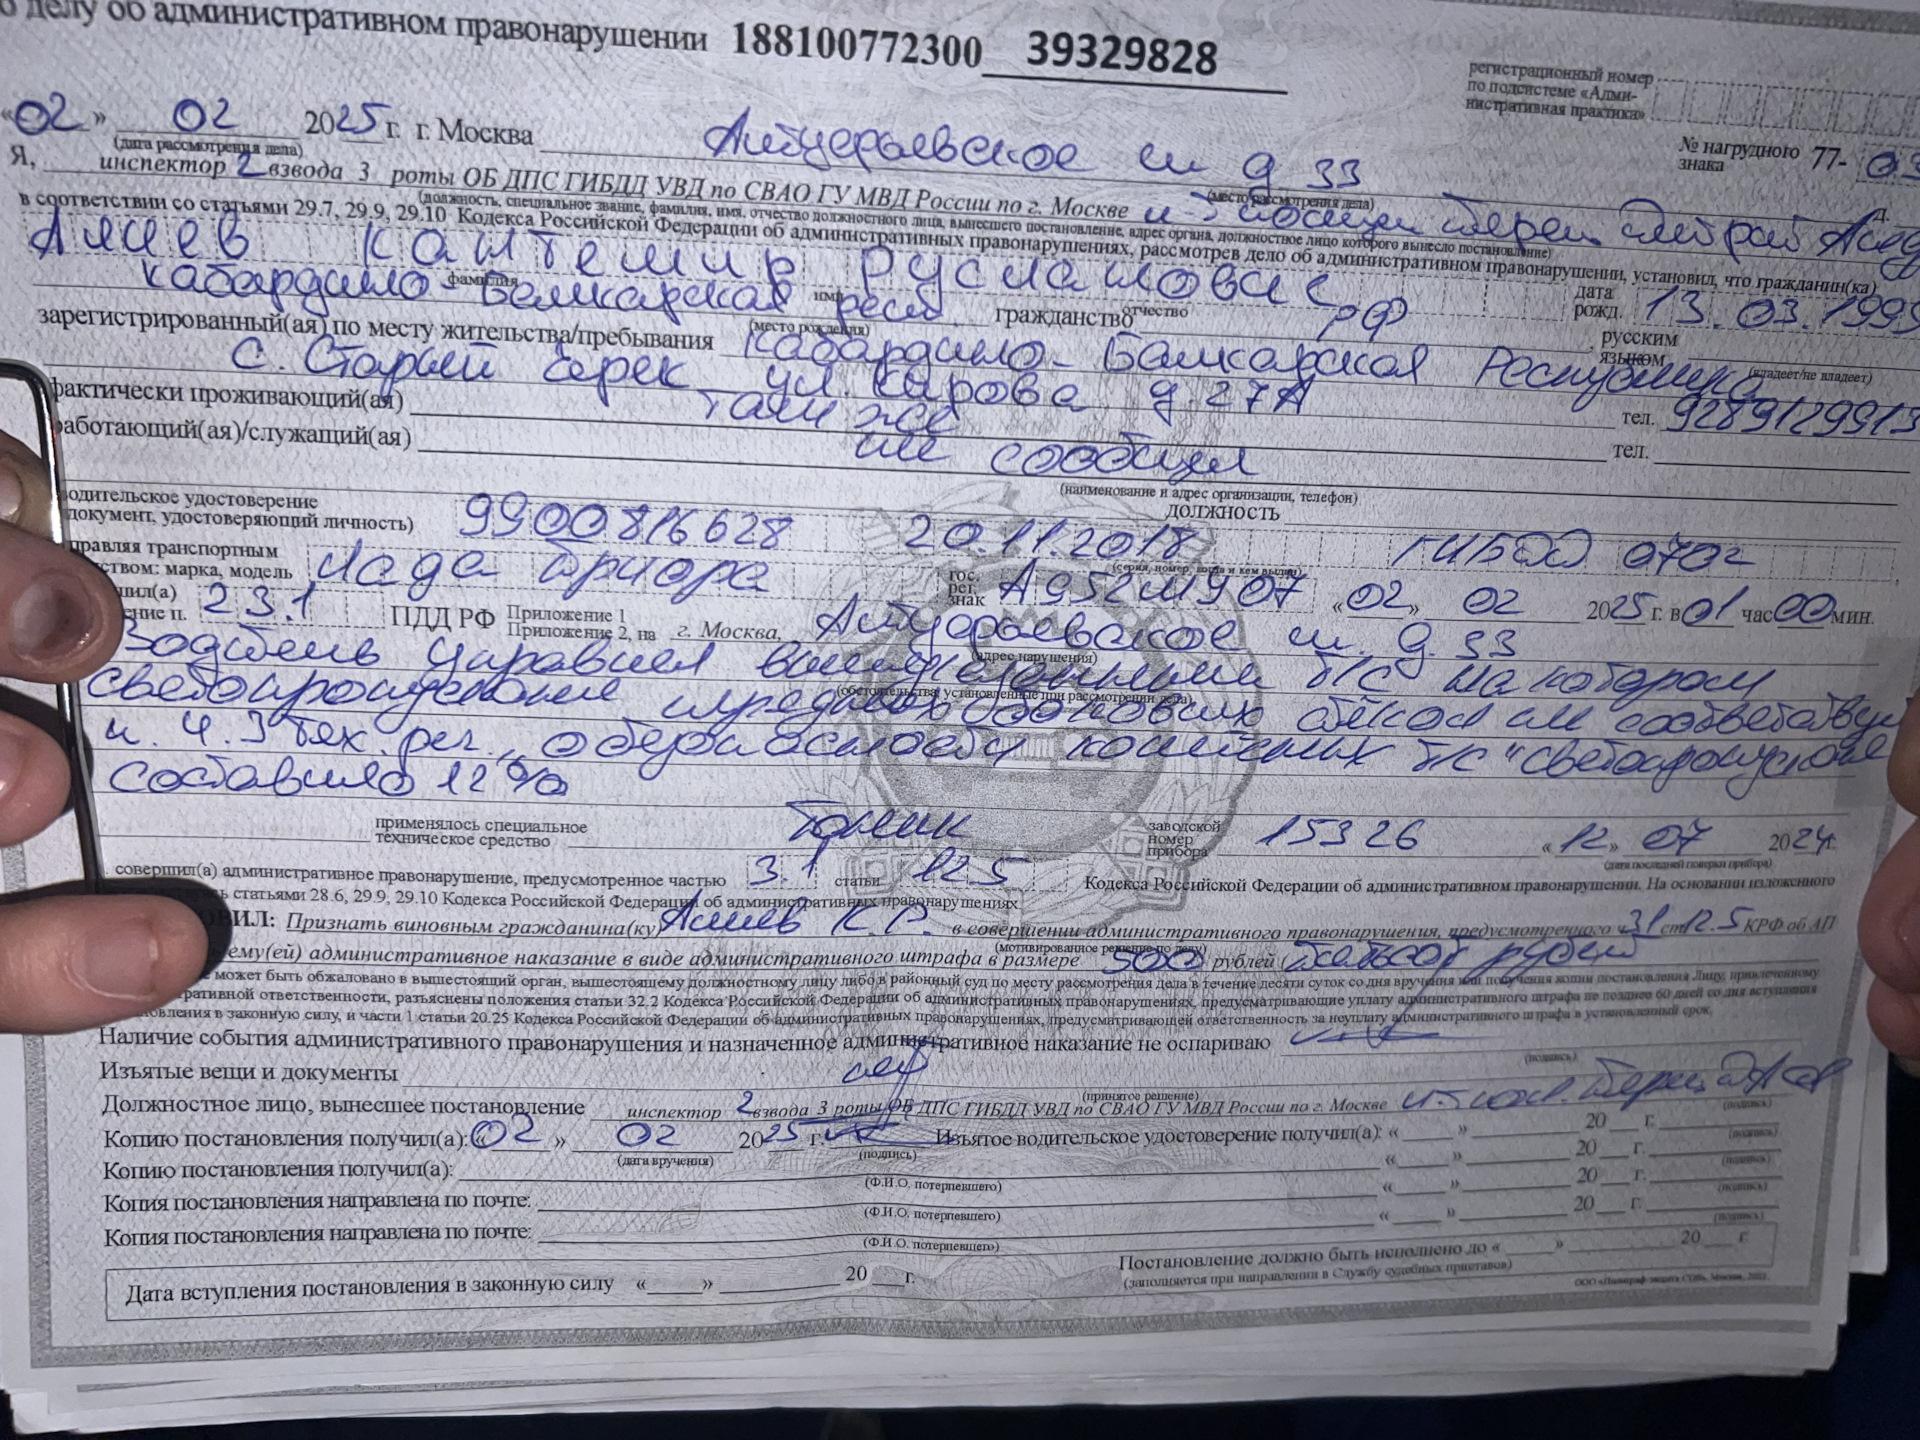 делу об административном правонарушении 188100772300 39329828
регистрационный номер
по подсистеме «Адми-
нистративная практика»
«02» 02 2025 г. г. Москва Алтуфьевское ш д 33
(дата рассмотрения дела) (место рассмотрения дела)
№ нагрудного знака 77-
Я, инспектор 2 взвода 3 роты ОБ ДПС ГИБДД УВД по СВАО ГУ МВД России по г. Москве
(должность, специальное звание, фамилия, имя, отчество должностного лица, вынесшего постановление, адрес органа, должностное лицо которого вынесло постановление)
в соответствии со статьями 29.7, 29.9, 29.10 Кодекса Российской Федерации об административных правонарушениях, рассмотрев дело об административном правонарушении, установил, что гражданин(ка)
Алиев Кантемир Русланович
фамилия имя отчество
дата рожд. 13.03.199
Кабардино-Балкарская респ гражданство РФ
(место рождения)
русским языком
(владеет/не владеет)
зарегистрированный(ая) по месту жительства/пребывания Кабардино-Балкарская Республика
с. Старый Черек ул. Карова д. 27А тел. 9289129913
фактически проживающий(ая) там же
работающий(ая)/служащий(ая) не сообщил тел.
(наименование и адрес организации, телефон)
должность
водительское удостоверение
документ, удостоверяющий личность) 9900816628 20.11.2018 ГИБДД 0702
(серия, номер, когда и кем выдан)
управляя транспортным
средством: марка, модель Лада Приора гос. рег. знак А952МУ07 «02» 02 2025 г. в 01 час 00 мин.
п. 2.3.1 ПДД РФ Приложение 1
Приложение 2, на г. Москва, Алтуфьевское ш. д. 33
(адрес нарушения)
Водитель управлял вышеуказанным т/с на котором
(обстоятельства, установленные при рассмотрении дела)
светопропускание передних боковых стекол не соответствуе
п. 4.3 тех. рег., о безопасности колесных т/с "светопропускание
составило 12%
применялось специальное
техническое средство Тоник заводской номер прибора 15326 «12» 07 2024г.
(дата последней поверки прибора)
совершил(а) административное правонарушение, предусмотренное частью 3.1 статьи 12.5 Кодекса Российской Федерации об административном правонарушении. На основании изложенного
статьями 28.6, 29.9, 29.10 Кодекса Российской Федерации об административных правонарушениях
ОВИЛ: Признать виновным гражданина(ку) Алиев К.Р. в совершении административного правонарушения, предусмотренного ч 3.1 ст 12.5 КРФ об АП
(мотивированное решение по делу)
ему(ей) административное наказание в виде административного штрафа в размере 500 рублей (пятьсот рублей
может быть обжаловано в вышестоящий орган, вышестоящему должностному лицу либо в районный суд по месту рассмотрения дела в течение десяти суток со дня вручения или получения копии постановления Лицу, привлеченному
ративной ответственности, разъяснены положения статьи 32.2 Кодекса Российской Федерации об административных правонарушениях, предусматривающие уплату административного штрафа не позднее 60 дней со дня вступления
новления в законную силу, и части 1 статьи 20.25 Кодекса Российской Федерации об административных правонарушениях, предусматривающей ответственность за неуплату административного штрафа в установленный срок.
Наличие события административного правонарушения и назначенное административное наказание не оспариваю
(подпись)
Изъятые вещи и документы нет
(принятое решение)
Должностное лицо, вынесшее постановление инспектор 2 взвода 3 роты ОБ ДПС ГИБДД УВД по СВАО ГУ МВД России по г. Москве
(подпись)
Копию постановления получил(а): «02» 02 2025 г. Изъятое водительское удостоверение получил(а): « » 20 г.
(дата вручения) (подпись) (подпись)
Копию постановления получил(а): « » 20 г.
(Ф.И.О. потерпевшего) (подпись)
Копия постановления направлена по почте: « » 20 г.
(Ф.И.О. потерпевшего) (подпись)
Копия постановления направлена по почте: « » 20 г.
(Ф.И.О. потерпевшего) (подпись)
Дата вступления постановления в законную силу « » 20 г. Постановление должно быть исполнено до « » 20 г.
(заполняется при направлении в Службу судебных приставов)